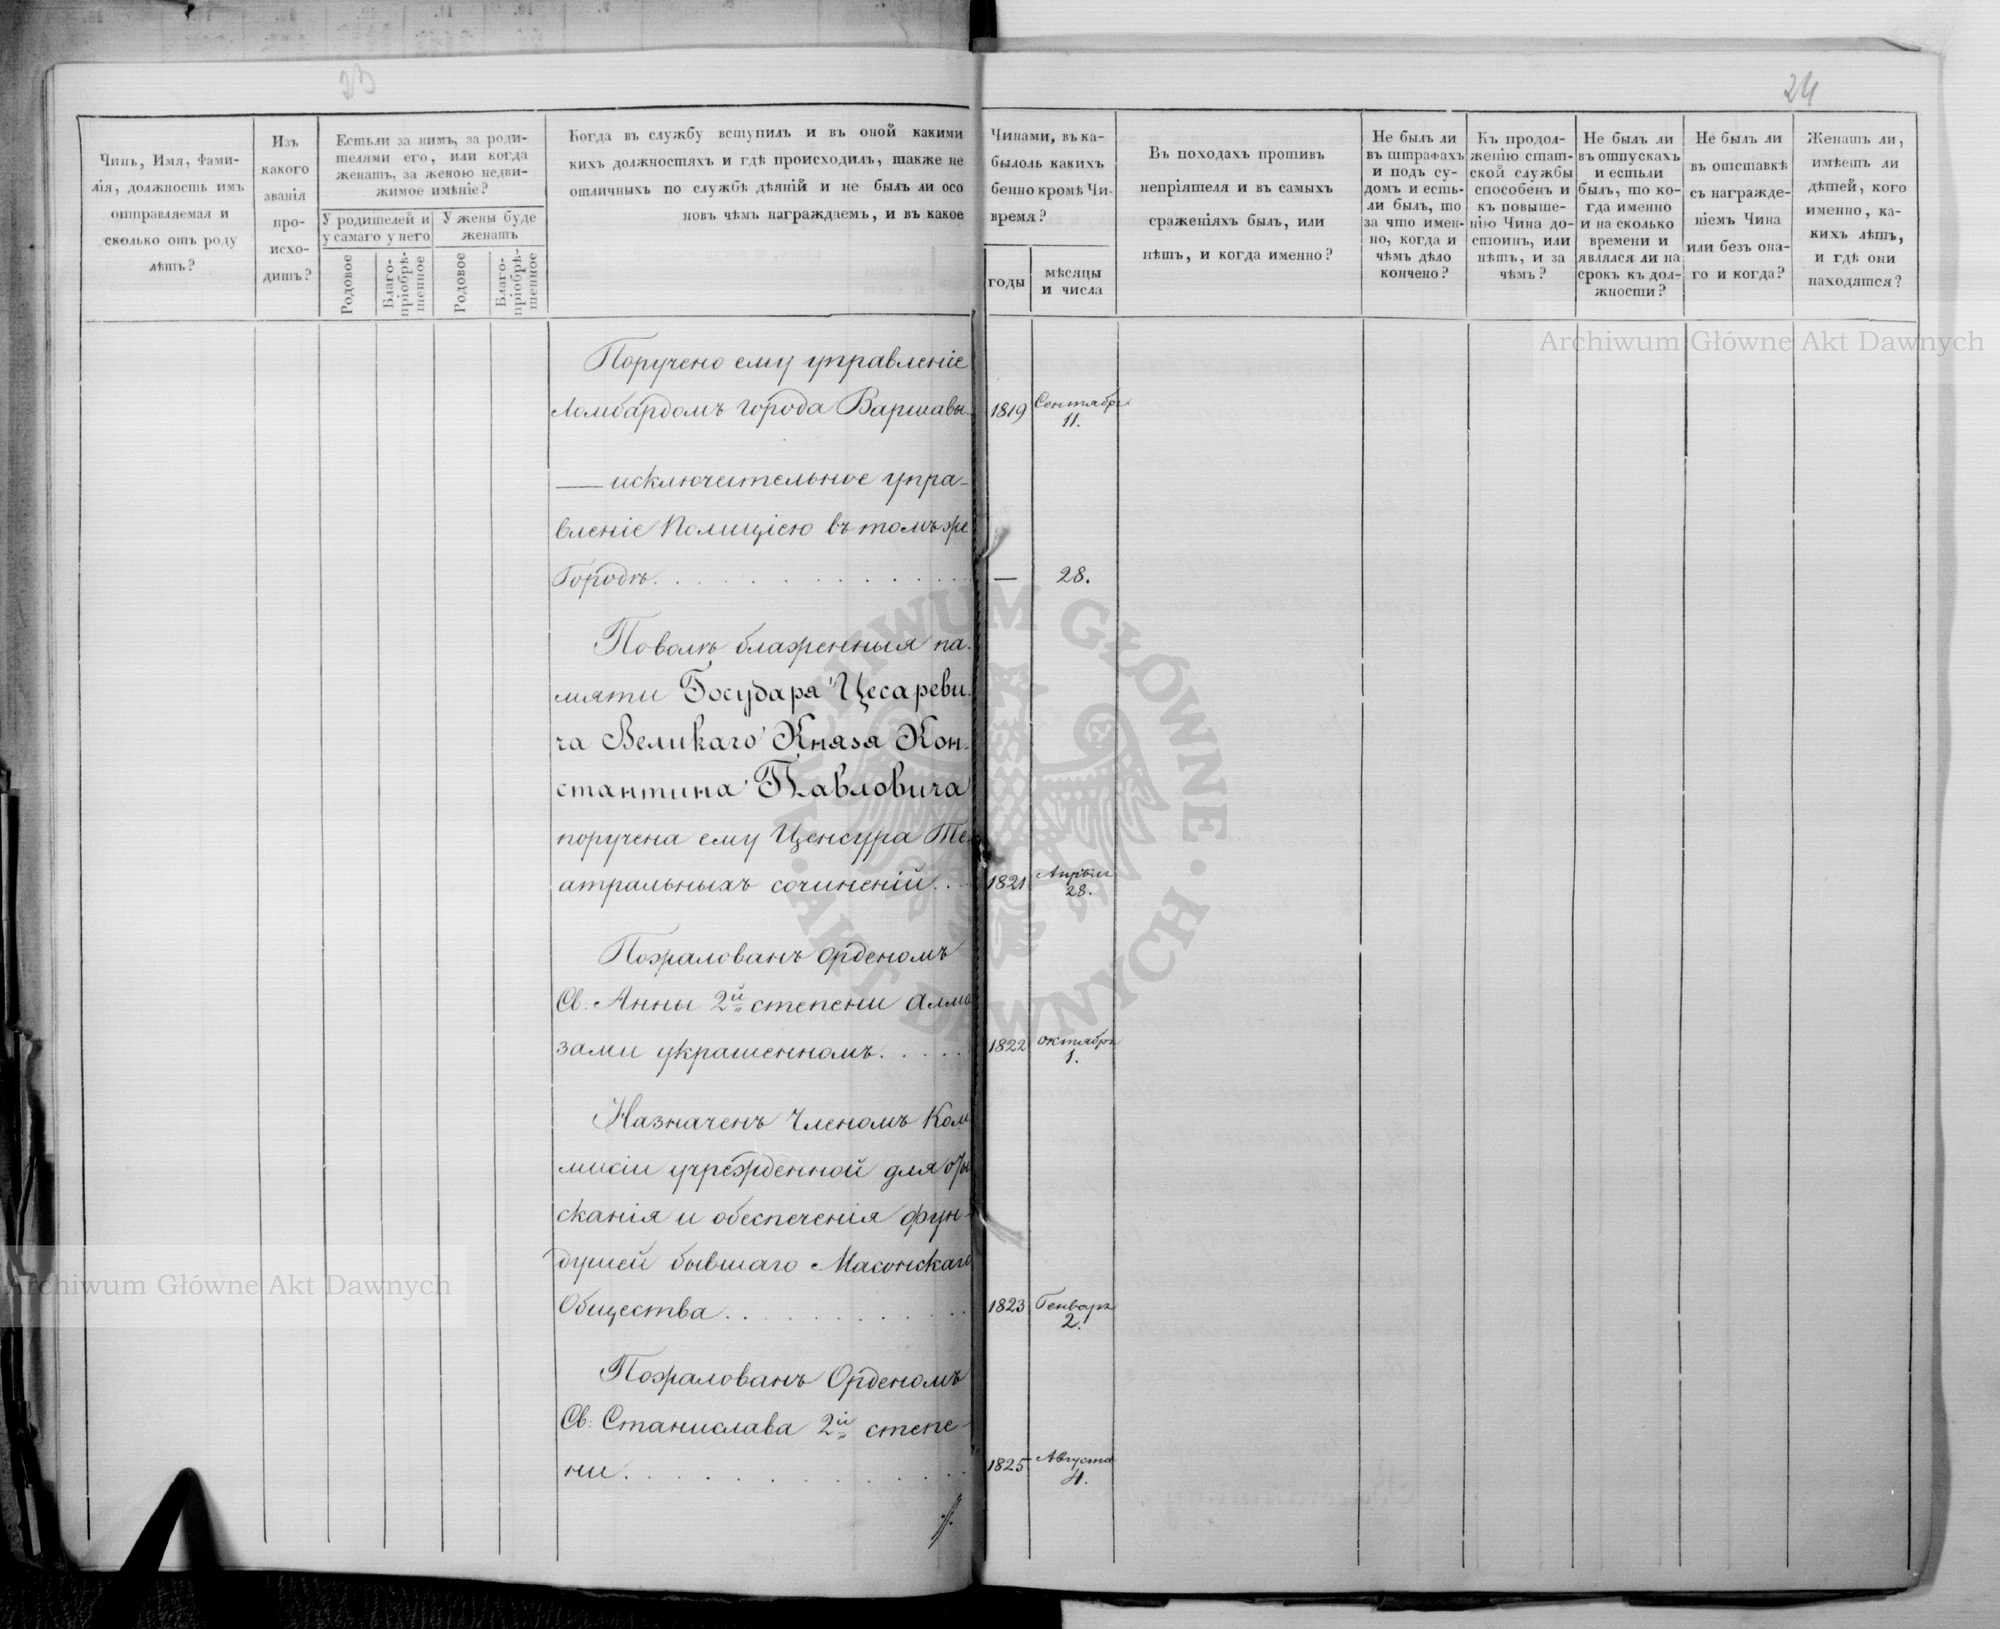 23
24
Чинъ, Имя, Фами-
лія, должность имъ
отправляемая и
сколько отъ роду
лѣтъ?
Изъ
какого
званія
про-
исхо-
дитъ?
Естьли за нимъ, за роди-
телями его, или когда
женатъ, за женою недви-
жимое имѣніе?
У родителей и
у самаго у него
У жены буде
женатъ
Родовое
Благо-
пріобрѣ-
тенное
Родовое
Благо-
пріобрѣ-
тенное
Когда въ службу вступилъ и въ оной какими
кихъ должностяхъ и гдѣ происходилъ, также не
отличныхъ по службѣ дѣяній и не былъ ли осо
новъ чѣмъ награждаемъ, и въ какое
Чинами, въ ка-
былоль какихъ
бенно кромѣ Чи-
время?
годы
мѣсяцы
и числа
Въ походахъ противъ
непріятеля и въ самыхъ
сраженіяхъ былъ, или
нѣтъ, и когда именно?
Не былъ ли
въ штрафахъ
и подъ су-
домъ и есть-
ли былъ, то
за что имен-
но, когда и
чѣмъ дѣло
кончено?
Къ продол-
женію стат-
ской службы
способенъ и
къ повыше-
нію Чина до-
стоинъ, или
нѣтъ, и за
чѣмъ?
Не былъ ли
въ отпускахъ
и естьли
былъ, то ко-
гда именно
и на сколько
времени и
явился ли на
срокъ къ дол-
жности?
Не былъ ли
въ отставкѣ
съ награжде-
ніемъ Чина
или безъ она-
го и когда?
Женатъ ли,
имѣетъ ли
дѣтей, кого
именно, ка-
кихъ лѣтъ,
и гдѣ они
находятся?
Поручено ему управленіе
Ломбардомъ города Варшавы. 1819 Сентября 11.
— исключительное упра-
вленіе Полиціею въ томъ же
Городѣ. . . . . . . . . . — 28.
По волѣ блаженныя па-
мяти Государя Цесареви-
ча Великаго Князя Кон-
стантина Павловича
поручена ему Ценсура Те-
атральныхъ сочиненій. . . 1821 Апрѣля 28.
Пожалованъ Орденомъ
Св. Анны 2й степени алма
зами украшенномъ. . . . . 1822 Октября 1.
Назначенъ Членомъ Ком
мисіи учрежденной для оты
сканія и обеспеченія фун-
душей бывшаго Масонскаго
Общества. . . . . . . . . 1823 Генваря 2.
Пожалованъ Орденомъ
Св. Станислава 2й степе-
ни. . . . . . . . . . . . 1825 Августа 4.
Archiwum Główne Akt Dawnych
Archiwum Główne Akt Dawnych
ARCHIWUM GŁÓWNE · AKT DAWNYCH ·